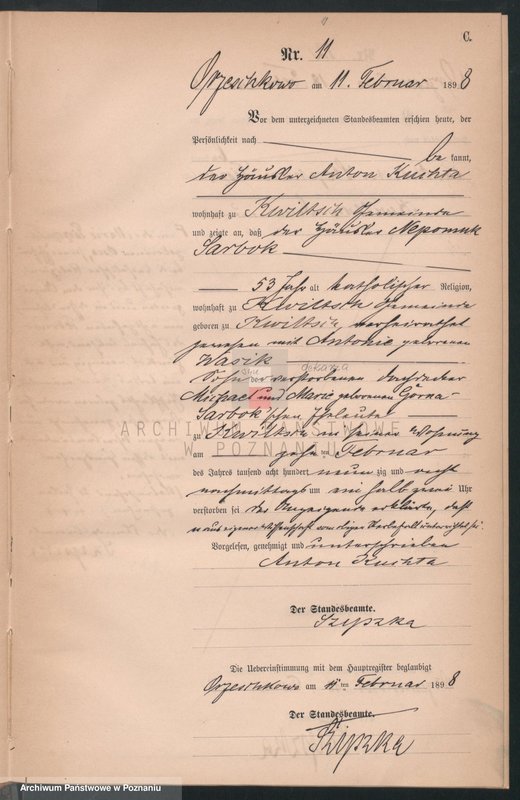 C.
Nr. 11
Orzeschkowo am 11. Februar 1898
Vor dem unterzeichneten Standesbeamten erschien heute, der
Persönlichkeit nach
be kannt,
der Häusler Anton Kuchta
wohnhaft zu Kwiltsch Gemeinde
und zeigte an, daß der Häusler Nepomuk
Sarbok
53 Jahr alt katholischer Religion,
wohnhaft zu Kwiltsch Gemeinde
geboren zu Kwiltsch, verheirathet
gewesen mit Antonie geborenen
Wasik
Sohn des verstorbenen
Michael und Marie geborenen Górna-
Sarbok'schen Eheleute
zu Kwiltsch in seiner Wohnung
am zehnten Februar
des Jahres tausend acht hundert neun zig und acht
nachmittags um ein halb Uhr
verstorben sei. Der Anzeigende erklärte, daß
er aus eigener Wissenschaft vom Sterbefall unterrichtet sei
Vorgelesen, genehmigt und unterschrieben
Anton Kuchta
Der Standesbeamte.
Szypzka
Die Uebereinstimmung mit dem Hauptregister beglaubigt
Orzeschkowo am 11ten Februar 1898
Der Standesbeamte.
Szypzka
ARCHIWUM PAŃSTWOWE
W POZNANIU
Archiwum Państwowe w Poznaniu